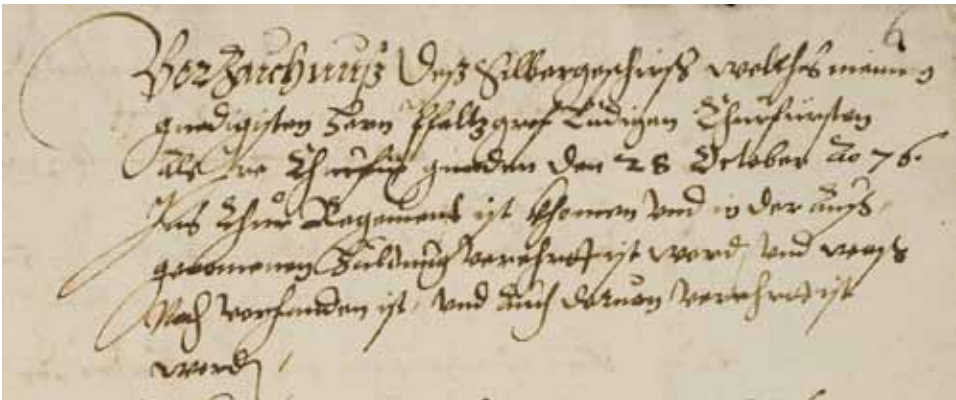 6
Verzaichnuß Deß Silbergeschirß welches meinem
gnedigisten Hern Pfaltzgraf Ludigen Churfürsten
als Ire Churfu gnaden den 28 October Ao 76.
Ins Chur Regiment ist khomen Vnd in der auff
genomenen Huldung verehret ist word Vnd was
Noch vorhanden ist, Vnd auch daruon verehret ist
word